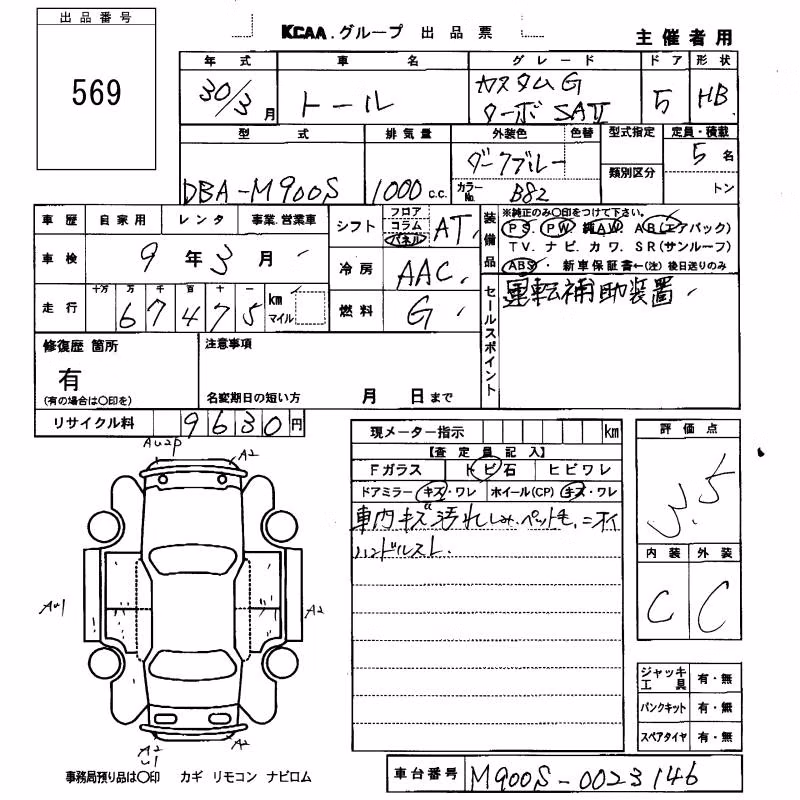 出品番号
569
KCAA.グループ 出品票
主催者用
年式 車名 グレード ドア 形状
30/3月 トール カスタムG ターボ SAⅡ 5 HB
型式 排気量 外装色 色替 型式指定 定員・積載
DBA-M900S 1000 c.c. ダークブルー 類別区分 5名
カラーNo. B82 トン
車歴 自家用 レンタ 事業.営業車
車検 9年3月
走行 十万 万 千 百 十 一
67475 km マイル
シフト フロア コラム パネル AT
冷房 AAC
燃料 G
装備品
※純正のみ〇印をつけて下さい。
PS. PW 純AW AB(エアバック)
TV. ナビ. カワ. SR(サンルーフ)
ABS. 新車保証書←(注) 後日送りのみ
セールスポイント
運転補助装置
修復歴 箇所
有
(有の場合は〇印を)
注意事項
名変期日の短い方 月 日まで
リサイクル料 9630円
現メーター指示 km
【査定員記入】
Fガラス トビ石 ヒビワレ
ドアミラー キズ・ワレ ホイール(CP) キズ・ワレ
車内キズ汚れしみ.ペット毛.ニオイ
ハンドルスレ.
評価点
3.5
内装 外装
C C
ジャッキ工具 有・無
パンクキット 有・無
スペアタイヤ 有・無
AU2P A2
AU1 A2
A2 A2
U1
事務局預り品は〇印 カギ リモコン ナビロム
車台番号 M900S-0023146